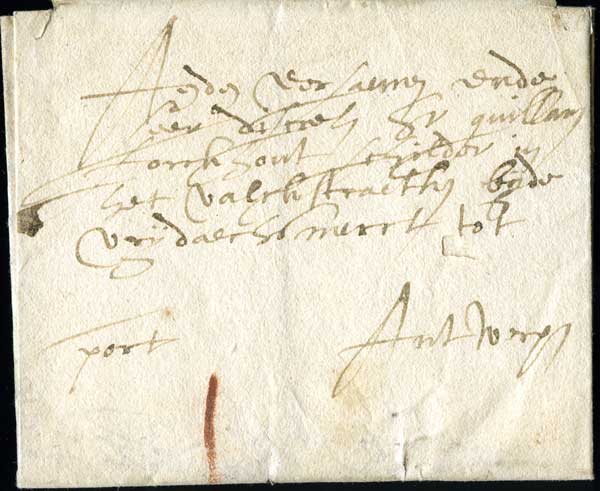 Aenden eersaemen ende
seer discreten Sr quillam
forchhout schilder in
het valckstraetken byde
vrijdaechsmerct tot
Antwerpen
port